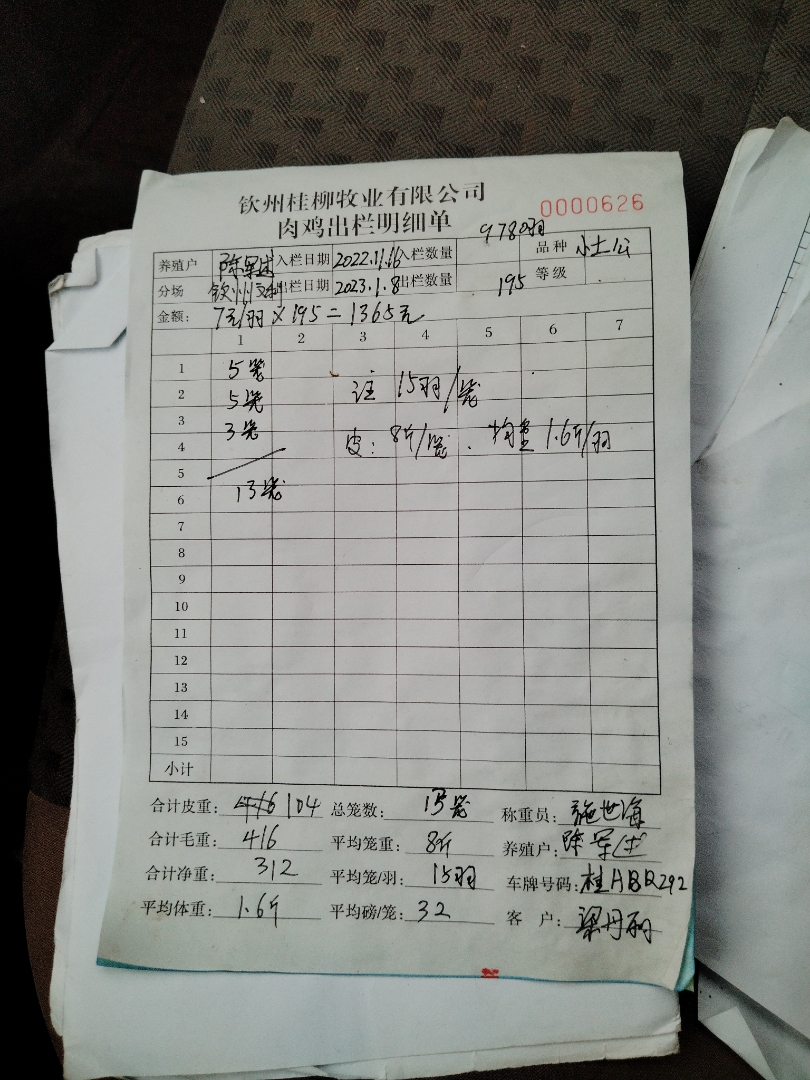 钦州桂柳牧业有限公司
0000626
肉鸡出栏明细单
9780羽
养殖户 陈军 入栏日期 2022.11.16 入栏数量 品种 小土公
分场 钦州 出栏日期 2023.1.8 出栏数量 195 等级
金额: 7元/羽 × 195 = 1365元
1 2 3 4 5 6 7
1 5笼
2 5笼 注 15羽/笼
3 3笼
4 皮: 8斤/笼. 均重 1.6斤/羽
5
6 13笼
7
8
9
10
11
12
13
14
15
小计
合计皮重: 104 总笼数: 13笼 称重员: 施世海
合计毛重: 416 平均笼重: 8斤 养殖户: 陈军
合计净重: 312 平均笼/羽: 15羽 车牌号码: 桂ABQ292
平均体重: 1.6斤 平均磅/笼: 32 客 户: 梁丹丽